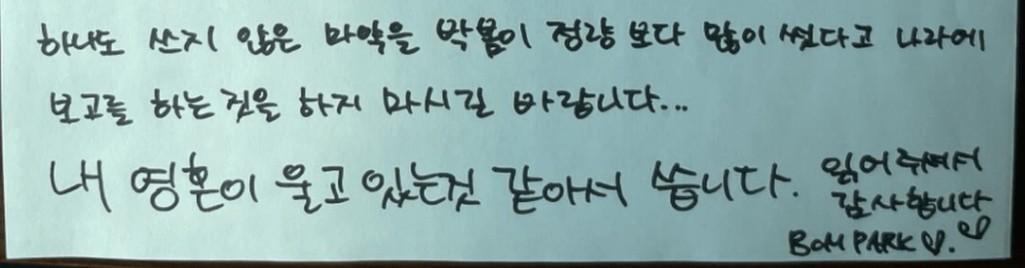 하나도 쓰지 않은 마약을 박봄이 정량 보다 많이 썼다고 나라에
보고를 하는 것을 하지 마시길 바랍니다...
내 영혼이 울고 있는것 같아서 씁니다.
읽어주셔서
감사합니다
BOM PARK♡.♡